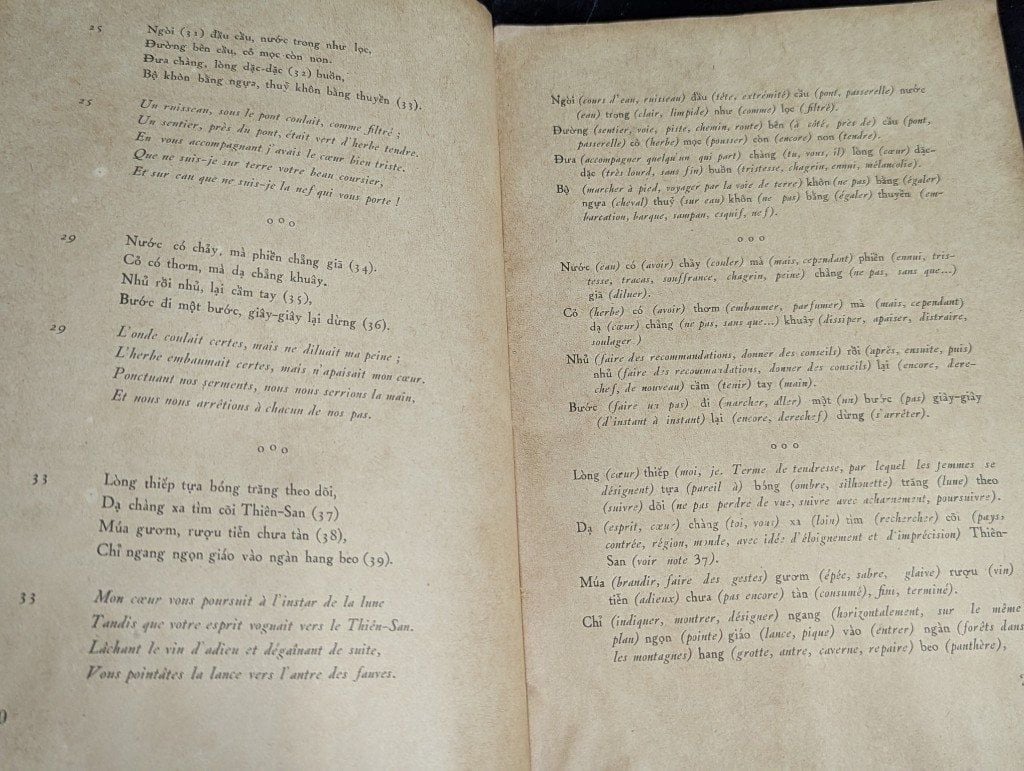 25 Ngòi (31) đầu cầu, nước trong như lọc,
Đường bên cầu, cỏ mọc còn non.
Đưa chàng, lòng dặc-dặc (32) buồn,
Bộ khôn bằng ngựa, thuỷ khôn bằng thuyền (33).
25 Un ruisseau, sous le pont coulait, comme filtré ;
Un sentier, près du pont, était vert d'herbe tendre.
En vous accompagnant j'avais le cœur bien triste.
Que ne suis-je sur terre votre beau coursier,
Et sur eau que ne suis-je la nef qui vous porte !
o o o
29 Nước có chảy, mà phiền chẳng giã (34).
Cỏ có thơm, mà dạ chẳng khuây.
Nhủ rồi nhủ, lại cầm tay (35),
Bước đi một bước, giây-giây lại dừng (36).
29 L'onde coulait certes, mais ne diluait ma peine ;
L'herbe embaumait certes, mais n'apaisait mon cœur.
Ponctuant nos serments, nous nous serrions la main,
Et nous nous arrêtions à chacun de nos pas.
o o o
33 Lòng thiếp tựa bóng trăng theo dõi,
Dạ chàng xa tìm cõi Thiên-San (37)
Múa gươm, rượu tiễn chưa tàn (38),
Chỉ ngang ngọn giáo vào ngàn hang beo (39).
33 Mon cœur vous poursuit à l'instar de la lune
Tandis que votre esprit voguait vers le Thiên-San.
Lâchant le vin d'adieu et dégaînant de suite,
Vous pointâtes la lance vers l'antre des fauves.
0
Ngòi (cours d'eau, ruisseau) đầu (tête, extrémité) cầu (pont, passerelle) nước
(eau) trong (clair, limpide) như (comme) lọc (filtré).
Đường (sentier, voie, piste, chemin, route) bên (à côté, près de) cầu (pont,
passerelle) cỏ (herbe) mọc (pousser) còn (encore) non (tendre).
Đưa (accompagner quelqu'un qui part) chàng (tu, vous, il) lòng (cœur) dặc-
dặc (très lourd, sans fin) buồn (tristesse, chagrin, ennui, mélancolie).
Bộ (marcher à pied, voyager par la voie de terre) khôn (ne pas) bằng (égaler)
ngựa (cheval) thuỷ (sur eau) khôn (ne pas) bằng (égaler) thuyền (em-
barcation, barque, sampan, esquif, nef).
o o o
Nước (eau) có (avoir) chảy (couler) mà (mais, cependant) phiền (ennui, tris-
tesse, tracas, souffrance, chagrin, peine) chẳng (ne pas, sans que...)
giã (diluer).
Cỏ (herbe) có (avoir) thơm (embaumer, parfumer) mà (mais, cependant)
dạ (cœur) chẳng (ne pas, sans que...) khuây (dissiper, apaiser, distraire,
soulager )
Nhủ (faire des recommandations, donner des conseils) rồi (après, ensuite, puis)
nhủ (faire des recommandations, donner des conseils) lại (encore, dere-
chef, de nouveau) cầm (tenir) tay (main).
Bước (faire un pas) đi (marcher, aller) một (un) bước (pas) giây-giây
(d'instant à instant) lại (encore, derechef) dừng (s'arrêter).
o o o
Lòng (cœur) thiếp (moi, je. Terme de tendresse, par lequel les femmes se
désignent) tựa (pareil à) bóng (ombre, silhouette) trăng (lune) theo
(suivre) dõi (ne pas perdre de vue, suivre avec acharnement, poursuivre).
Dạ (esprit, cœur) chàng (toi, vous) xa (loin) tìm (rechercher) cõi (pays,
contrée, région, monde, avec idée d'éloignement et d'imprécision) Thiên-
San (voir note 37).
Múa (brandir, faire des gestes) gươm (épée, sabre, glaive) rượu (vin)
tiễn (adieux) chưa (pas encore) tàn (consumé, fini, terminé).
Chỉ (indiquer, montrer, désigner) ngang (horizontalement, sur le même
plan) ngọn (pointe) giáo (lance, pique) vào (entrer) ngàn (forêts dans
les montagnes) hang (grotte, antre, caverne, repaire) beo (panthère),